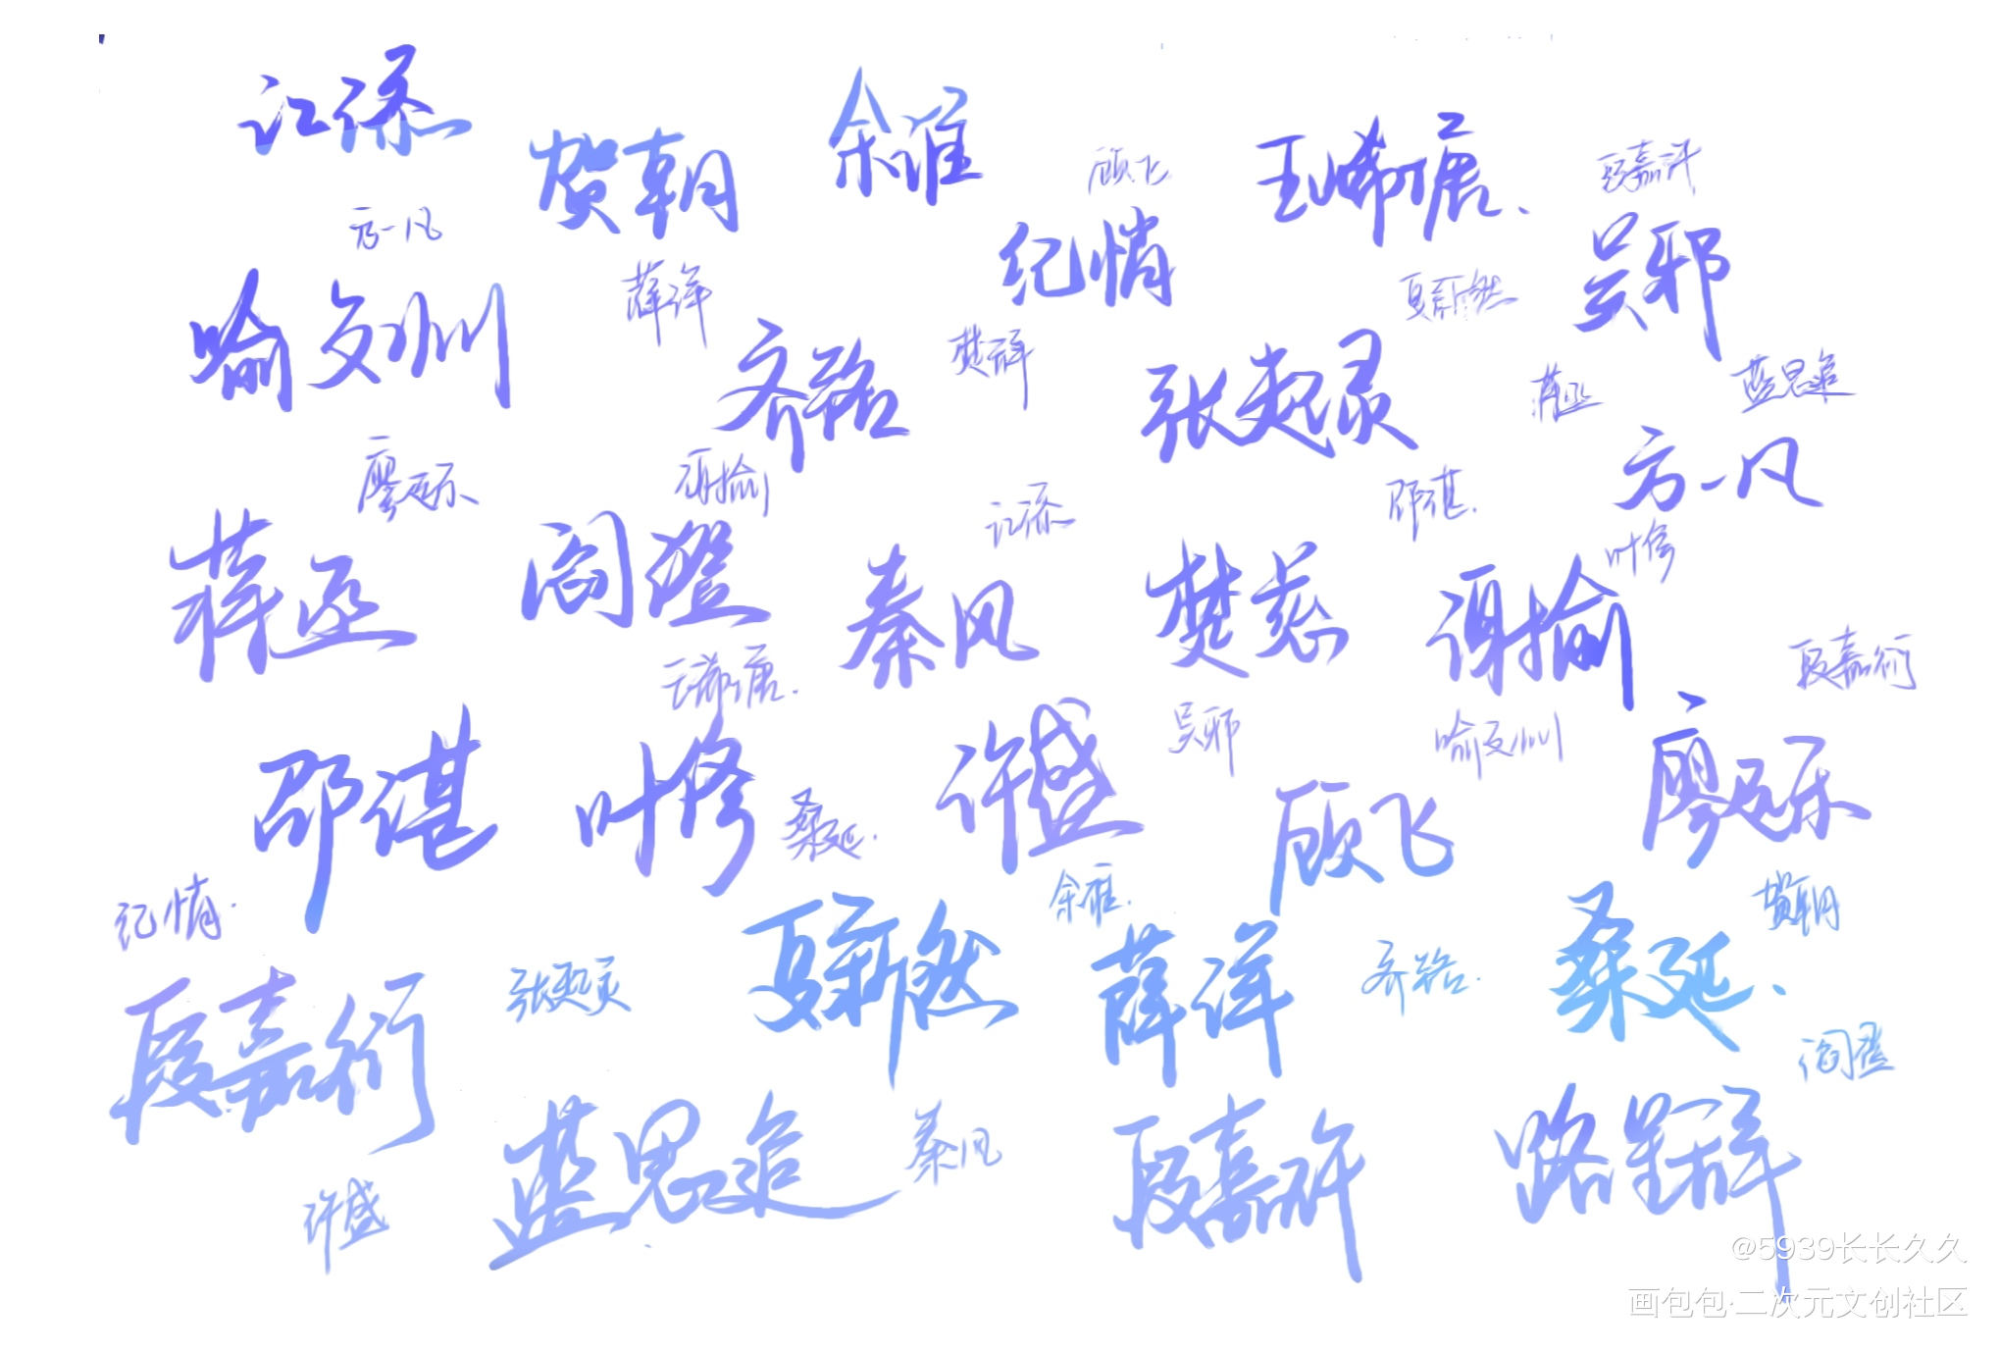 江添
贺朝
余淮
顾飞
王晞唐.
段嘉许
方一凡
纪情
吴邪
喻文州
薛洋
夏新然
齐路
楚辞
张起灵
蒋丞
蓝思追
方一凡
廖延乐
谢揄
江添
邵湛.
叶修
蒋丞
阎澄
秦风
楚慈
谢揄
段嘉衍
王晞唐.
邵湛
叶修
许盛
吴邪
喻文州
廖延乐
桑延.
顾飞
纪情.
夏新然
余淮.
薛洋
桑延.
贺朝
段嘉衍
张起灵
齐路.
阎澄
蓝思追
秦风
段嘉许
路星辞
许盛
@5939长长久久
画包包·二次元文创社区